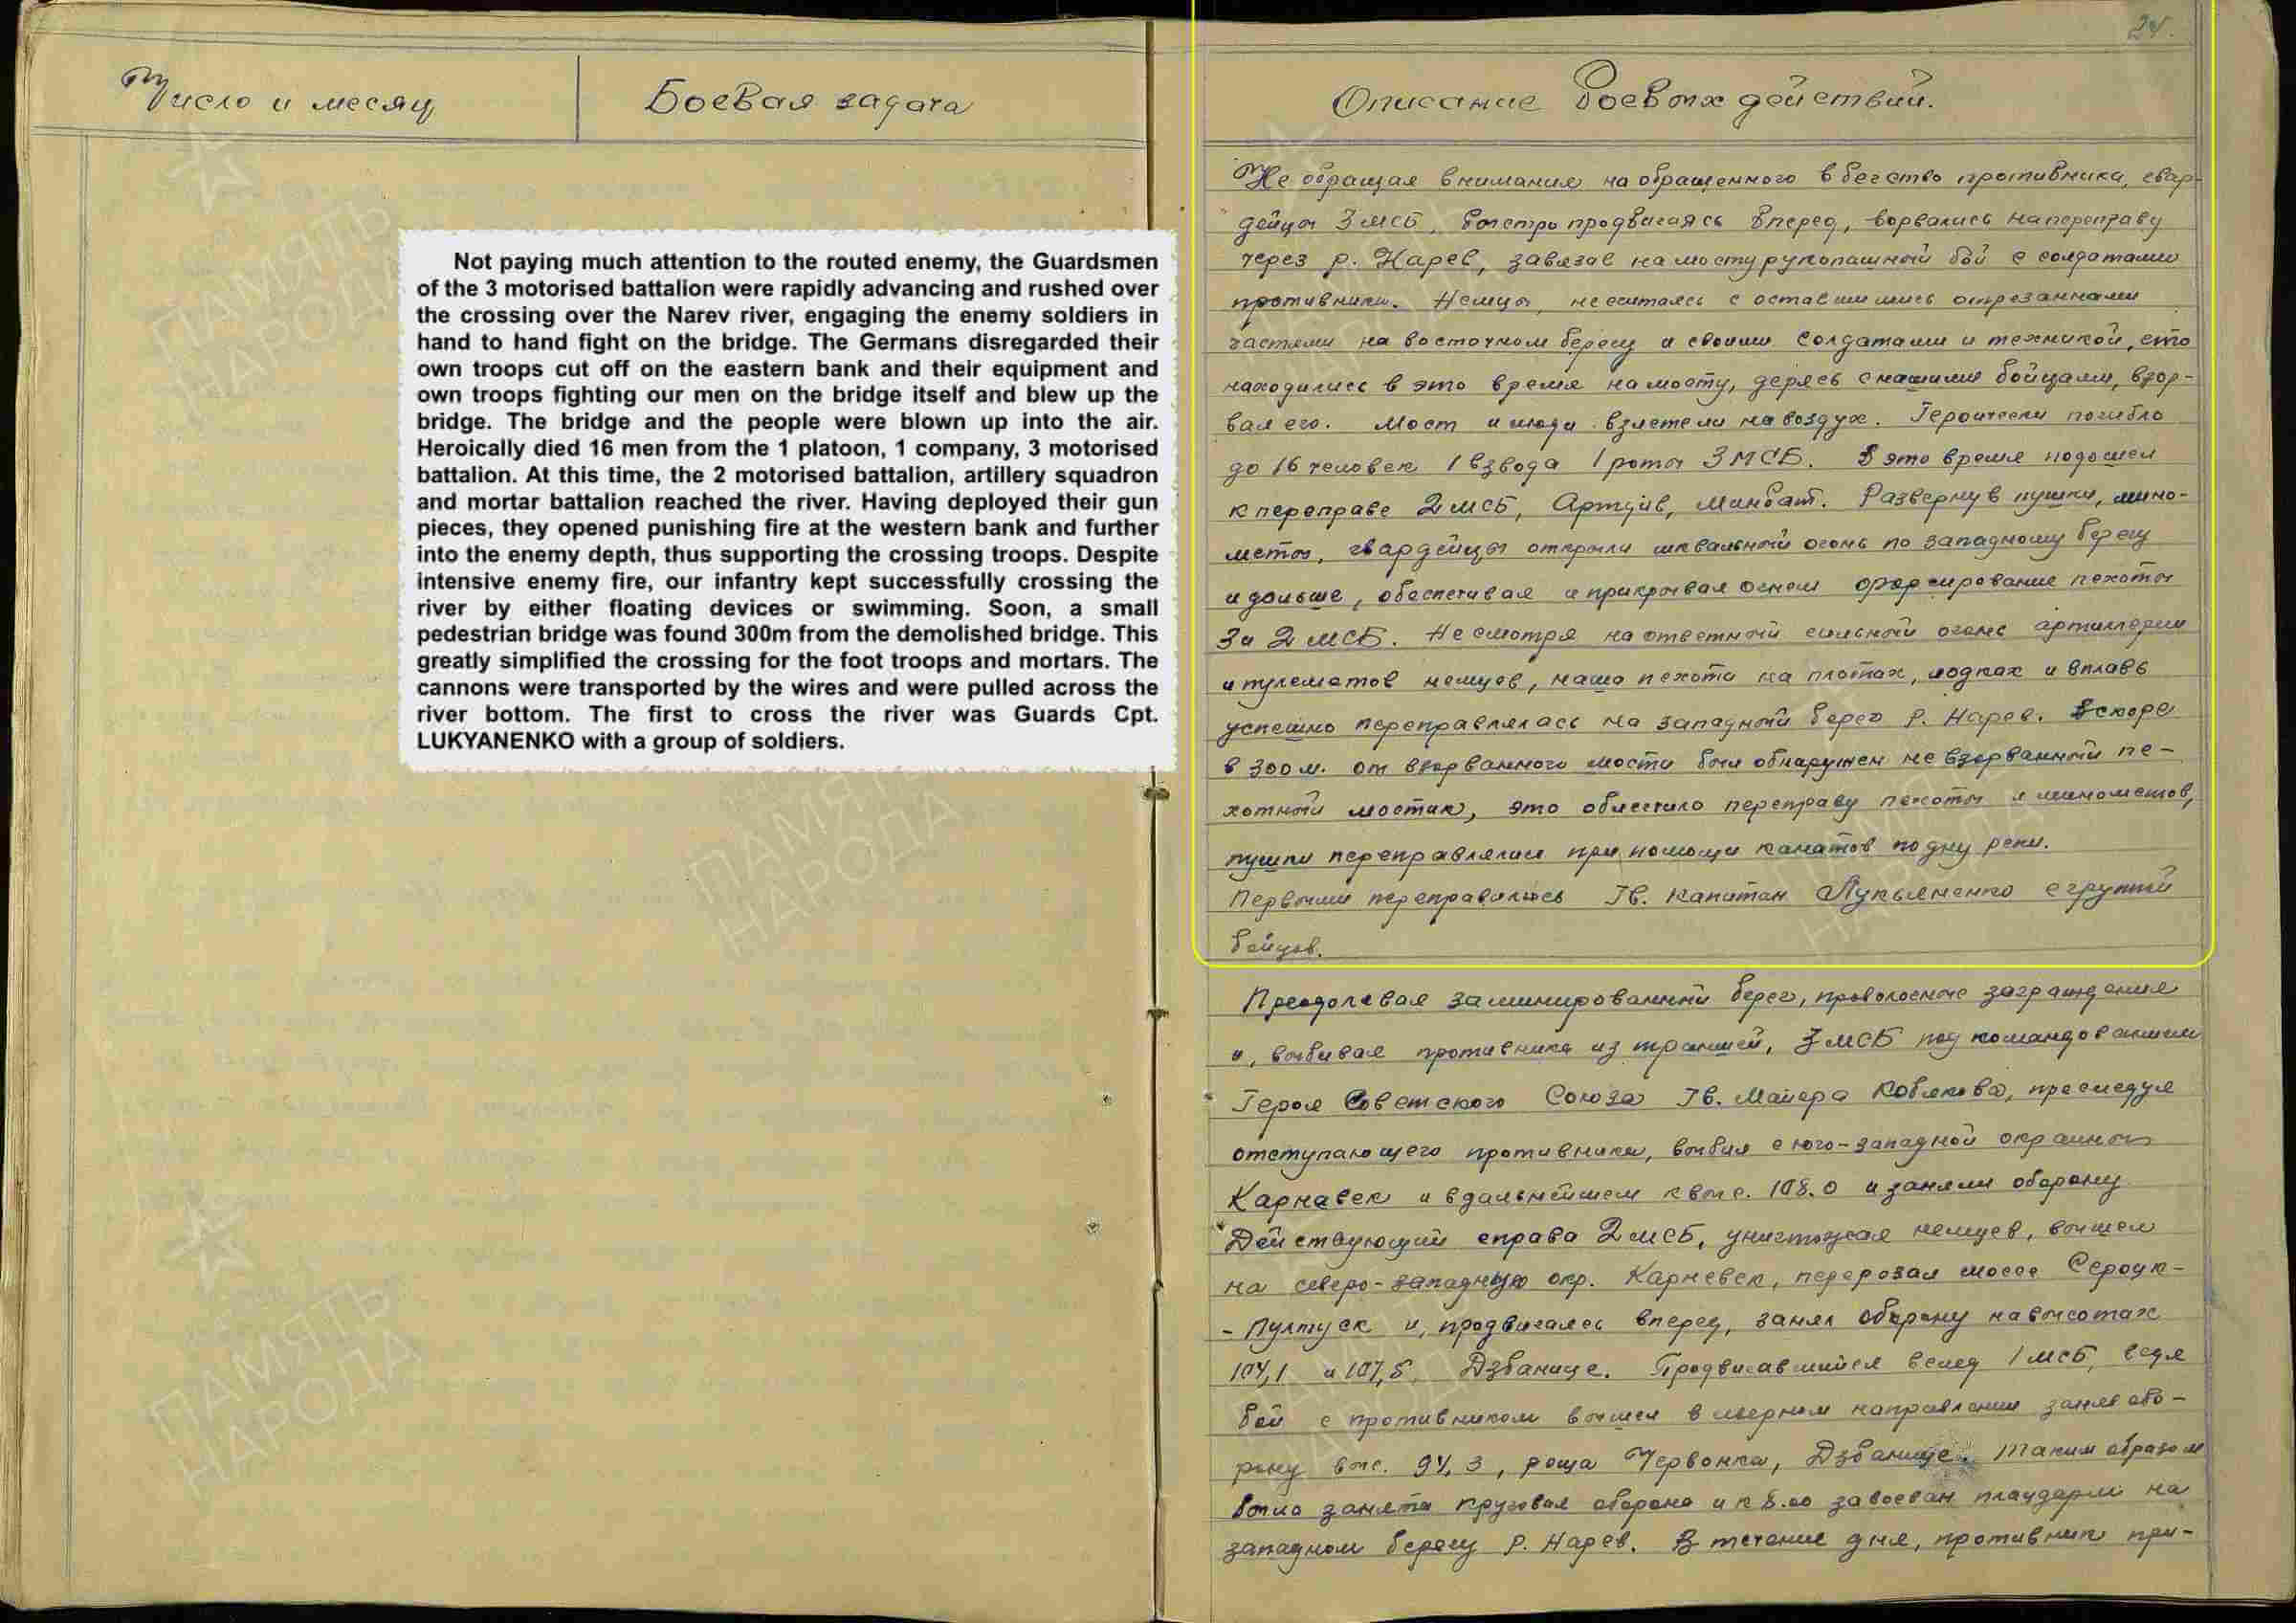 24.
Число и месяц
Боевая задача
Описание боевых действий.
Not paying much attention to the routed enemy, the Guardsmen
of the 3 motorised battalion were rapidly advancing and rushed over
the crossing over the Narev river, engaging the enemy soldiers in
hand to hand fight on the bridge. The Germans disregarded their
own troops cut off on the eastern bank and their equipment and
own troops fighting our men on the bridge itself and blew up the
bridge. The bridge and the people were blown up into the air.
Heroically died 16 men from the 1 platoon, 1 company, 3 motorised
battalion. At this time, the 2 motorised battalion, artillery squadron
and mortar battalion reached the river. Having deployed their gun
pieces, they opened punishing fire at the western bank and further
into the enemy depth, thus supporting the crossing troops. Despite
intensive enemy fire, our infantry kept successfully crossing the
river by either floating devices or swimming. Soon, a small
pedestrian bridge was found 300m from the demolished bridge. This
greatly simplified the crossing for the foot troops and mortars. The
cannons were transported by the wires and were pulled across the
river bottom. The first to cross the river was Guards Cpt.
LUKYANENKO with a group of soldiers.
Не обращая внимания на обращенного в бегство противника, гвар-
дейцы 3 мсб, быстро продвигаясь вперед, ворвались на переправу
через р. Нарев, завязав на мосту рукопашный бой с солдатами
противника. Немцы, не считаясь с оставшимися отрезанными
частями на восточном берегу и своими солдатами и техникой, что
находились в это время на мосту, дерясь с нашими бойцами, взор-
вал его. Мост и люди взлетели на воздух. Героически погибло
до 16 человек 1 взвода 1 роты 3 МСБ. В это время подошел
к переправе 2 мсб, Артдив, минбат. Развернув пушки, мино-
меты, гвардейцы открыли шквальный огонь по западному берегу
и дальше, обеспечивая и прикрывая огнем форсирование пехоты
За 2 мсб. Не смотря на ответный сильный огонь артиллерии
и пулеметов немцев, наша пехота на плотах, лодках и вплавь
успешно переправлялась на западный берег р. Нарев. Вскоре
в 300 м. от взорванного моста был обнаружен не взорванный пе-
хотный мостик, это облегчило переправу пехоты и минометов,
пушки переправляли при помощи канатов по дну реки.
Первыми переправились Гв. капитан Лукьяненко с группой
бойцов.
Преодолевая заминированный берег, проволочные заграждения
и, выбивая противника из траншей, 3 мсб под командованием
Героя Советского Союза Гв. Майора Кобякова, преследуя
отступающего противника, выбил с юго-западной окраины
Карневек и в дальнейшем к выс. 108.0 и заняли оборону
Действующий справа 2 мсб, уничтожая немцев, вышел
на северо-западную окр. Карневек, перерезал шоссе Сероцк-
- Пултуск и, продвигаясь вперед, занял оборону на высотах
104,1 и 107,5 Дзбанице. Продвигавшийся вслед 1 мсб, ведя
бой с противником вышел в северном направлении занял обо-
рону выс. 94,3, роща Червонка, Дзбанице. Таким образом
была занята круговая оборона и к 8.00 завоеван плацдарм на
западном берегу р. Нарев. В течение дня, противник при-
ПАМЯТЬ
НАРОДА
ПАМЯТЬ
НАРОДА
ПАМЯТЬ
НАРОДА